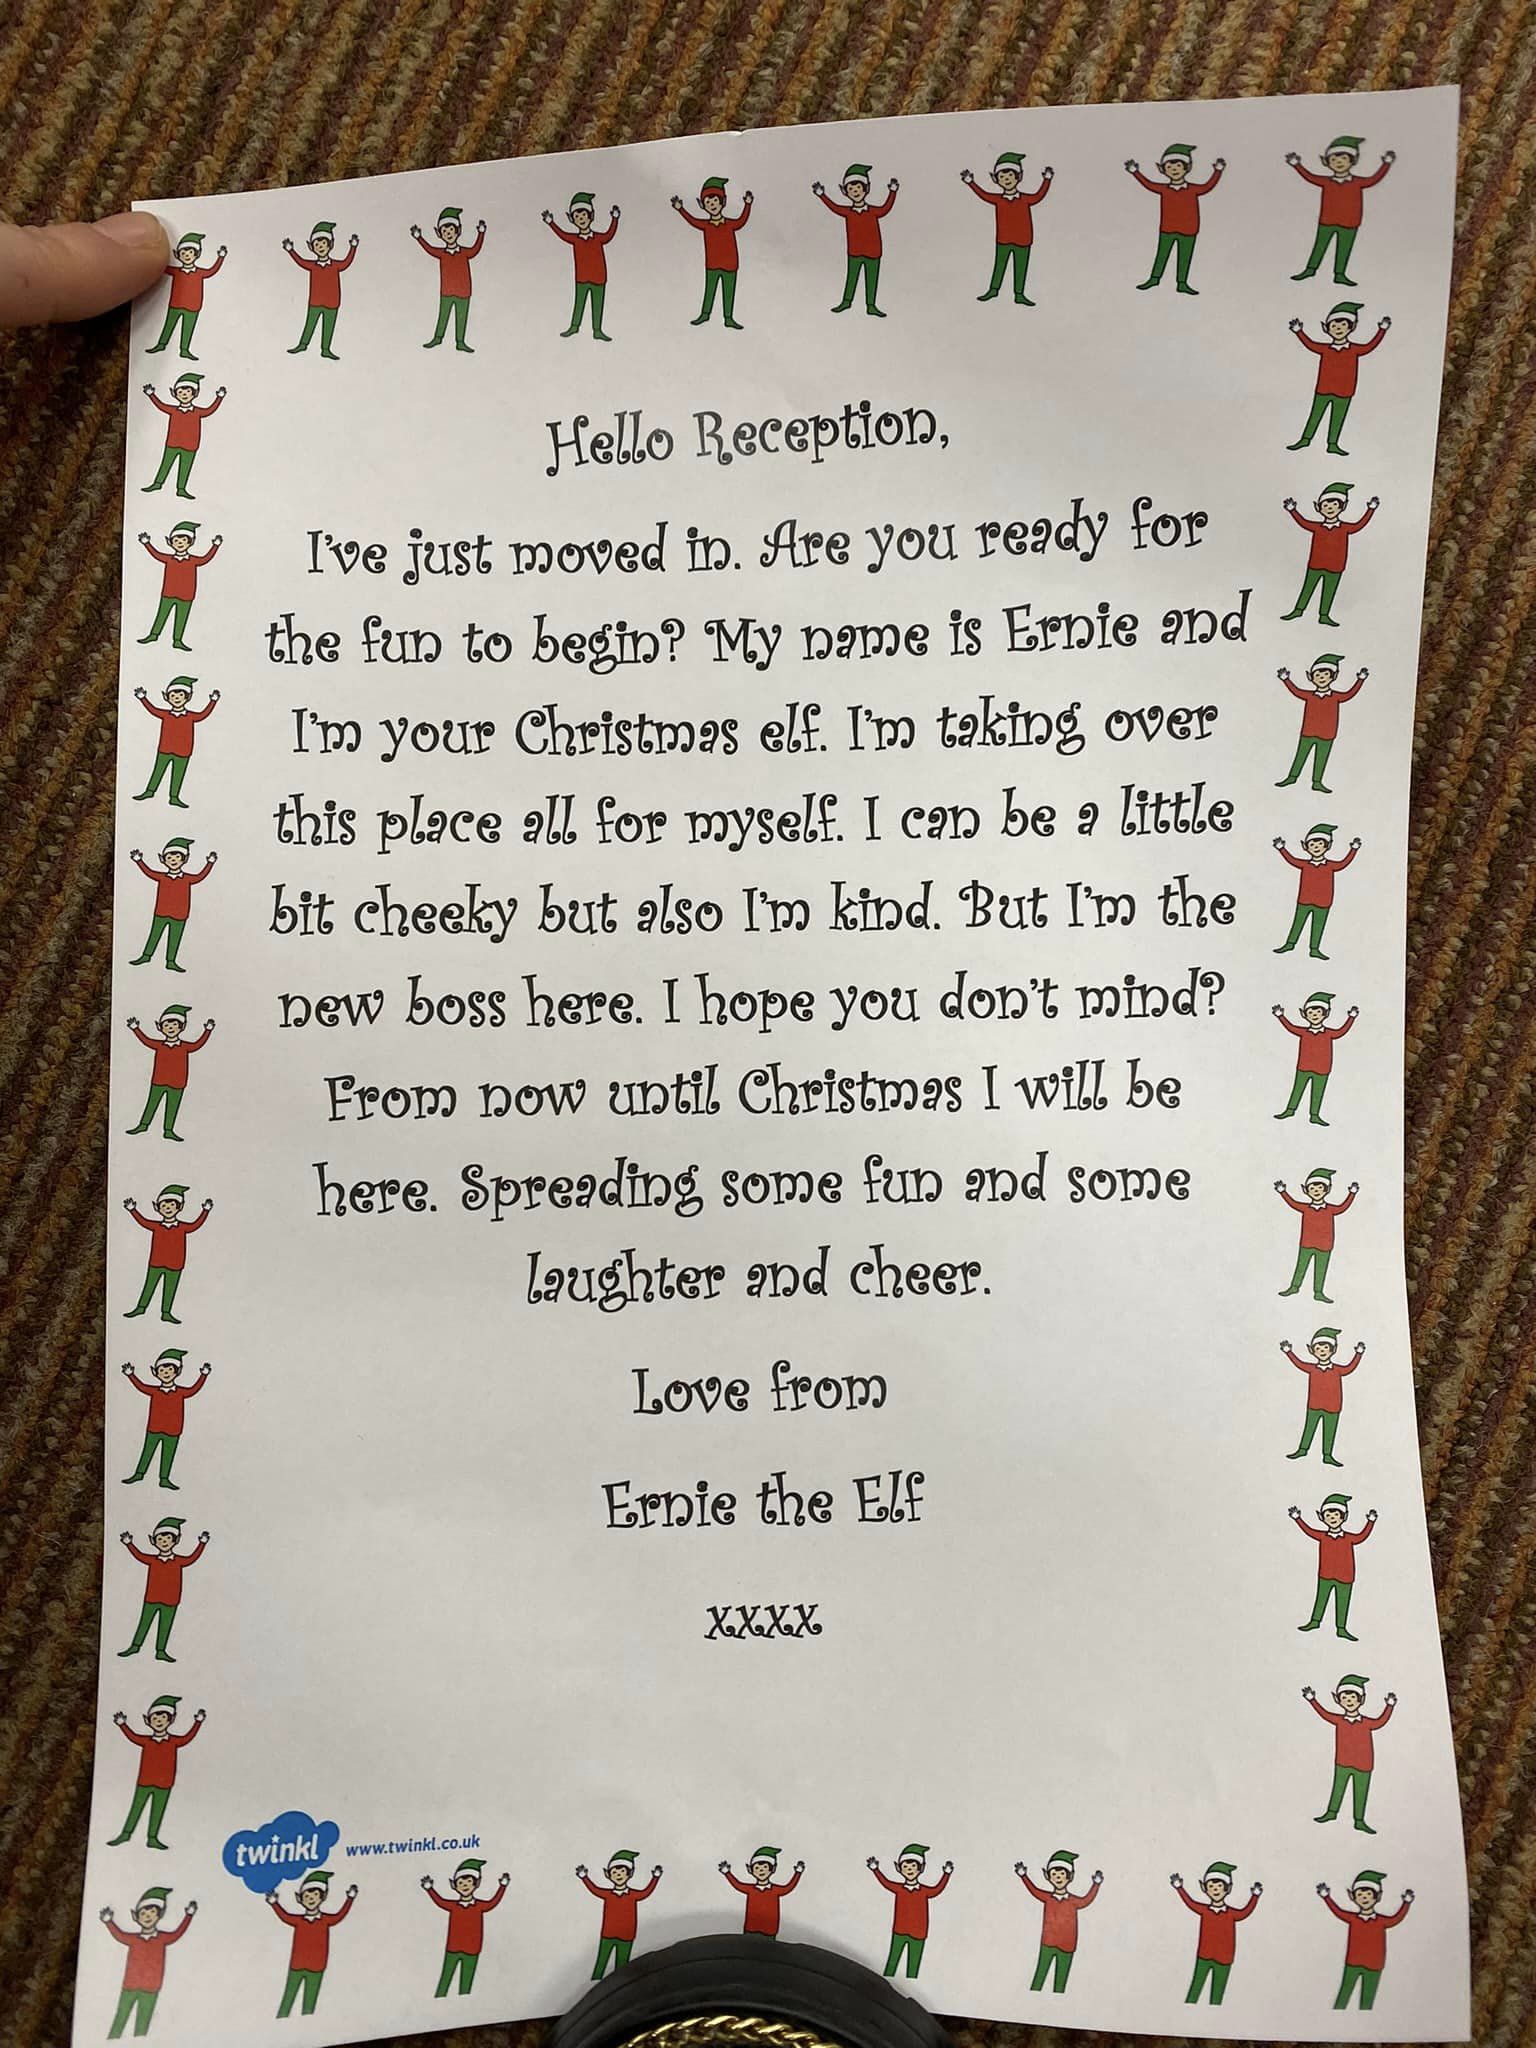 Hello Reception,
I've just moved in. Are you ready for
the fun to begin? My name is Ernie and
I'm your Christmas elf. I'm taking over
this place all for myself. I can be a little
bit cheeky but also I'm kind. But I'm the
new boss here. I hope you don't mind?
From now until Christmas I will be
here. Spreading some fun and some
laughter and cheer.
Love from
Ernie the Elf
xxxx
twinkl www.twinkl.co.uk